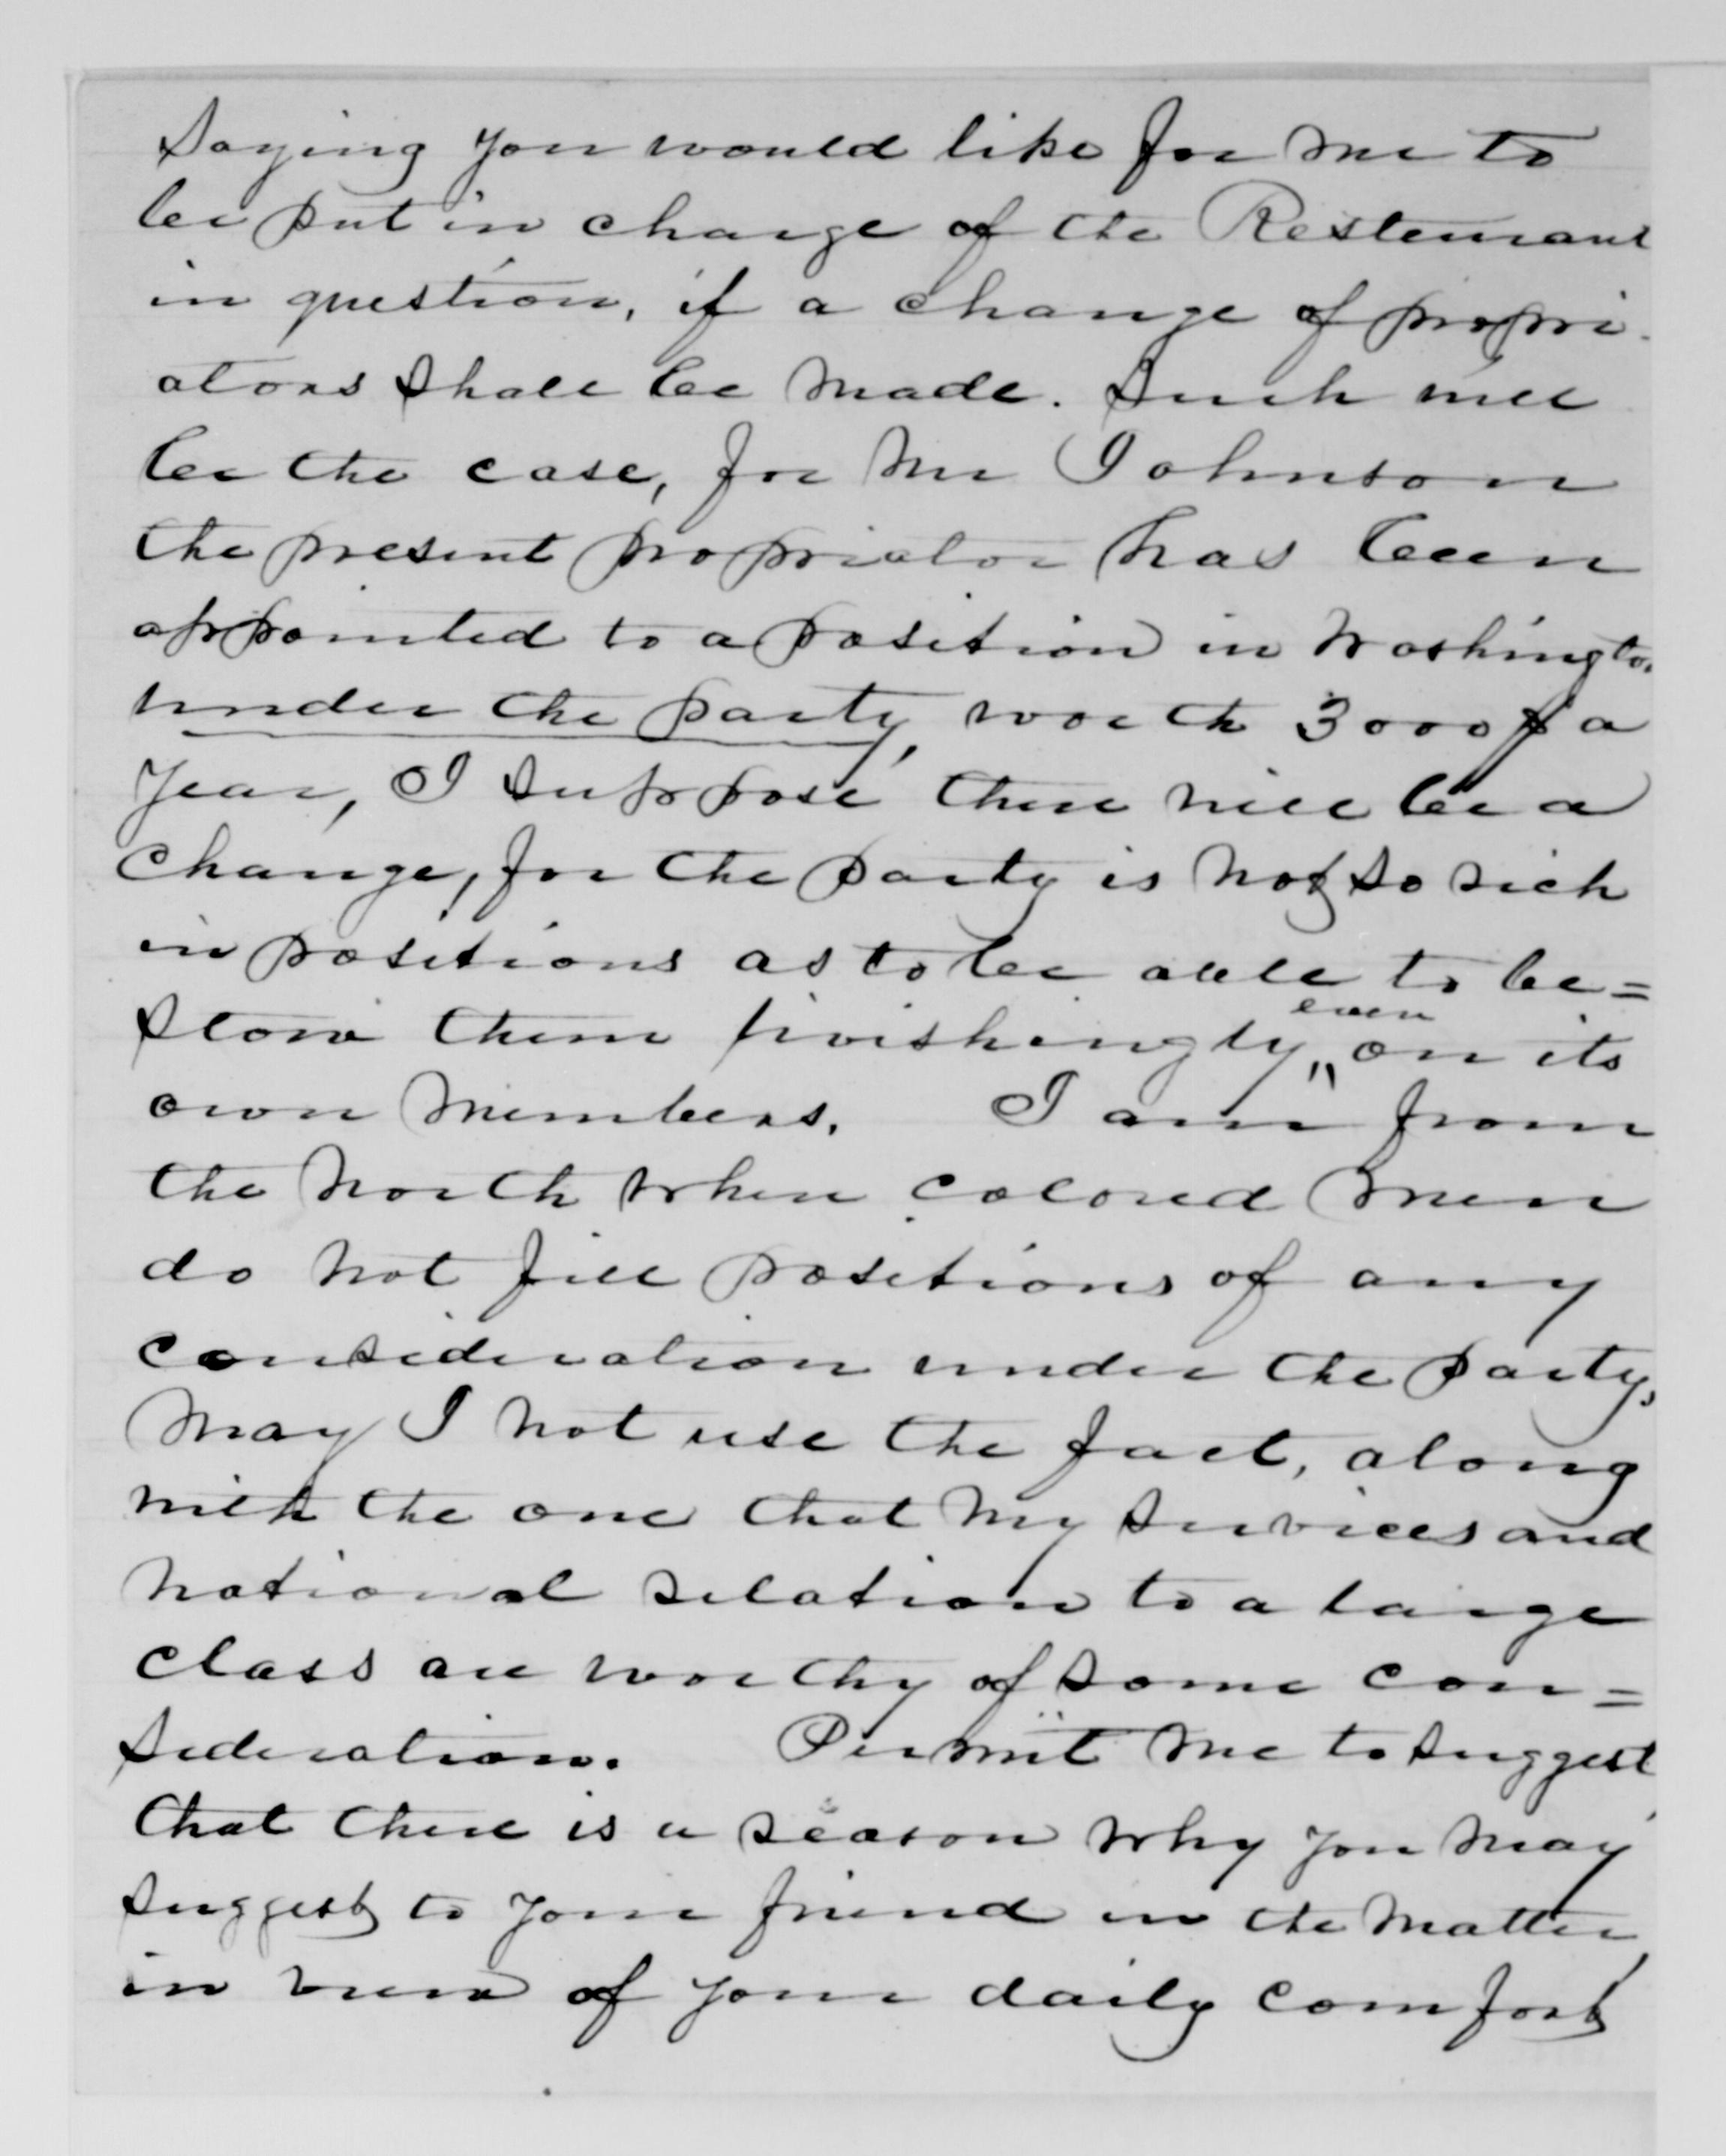 Saying you would like for me to
be put in charge of the Resteurant
in question, if a change of propri-
ators shall be made. Such will
be the case, for Mr Johnson
the present propriator has been
appointed to a position in Washington
under the party, worth 3000$ a
year, I suppose there will be a
change, for the party is not so rich
in positions as to be able to be=
stow them even on its
own members. I am from
the North where colored men
do not fill positions of any
consideration under the party,
May I not use the fact, along
with the one that my services and
national relation to a large
class are worthy of some con=
sideration. Permit me to suggest
that there is a reason why you may
suggest to your friend in the matter
in view of your daily comfort